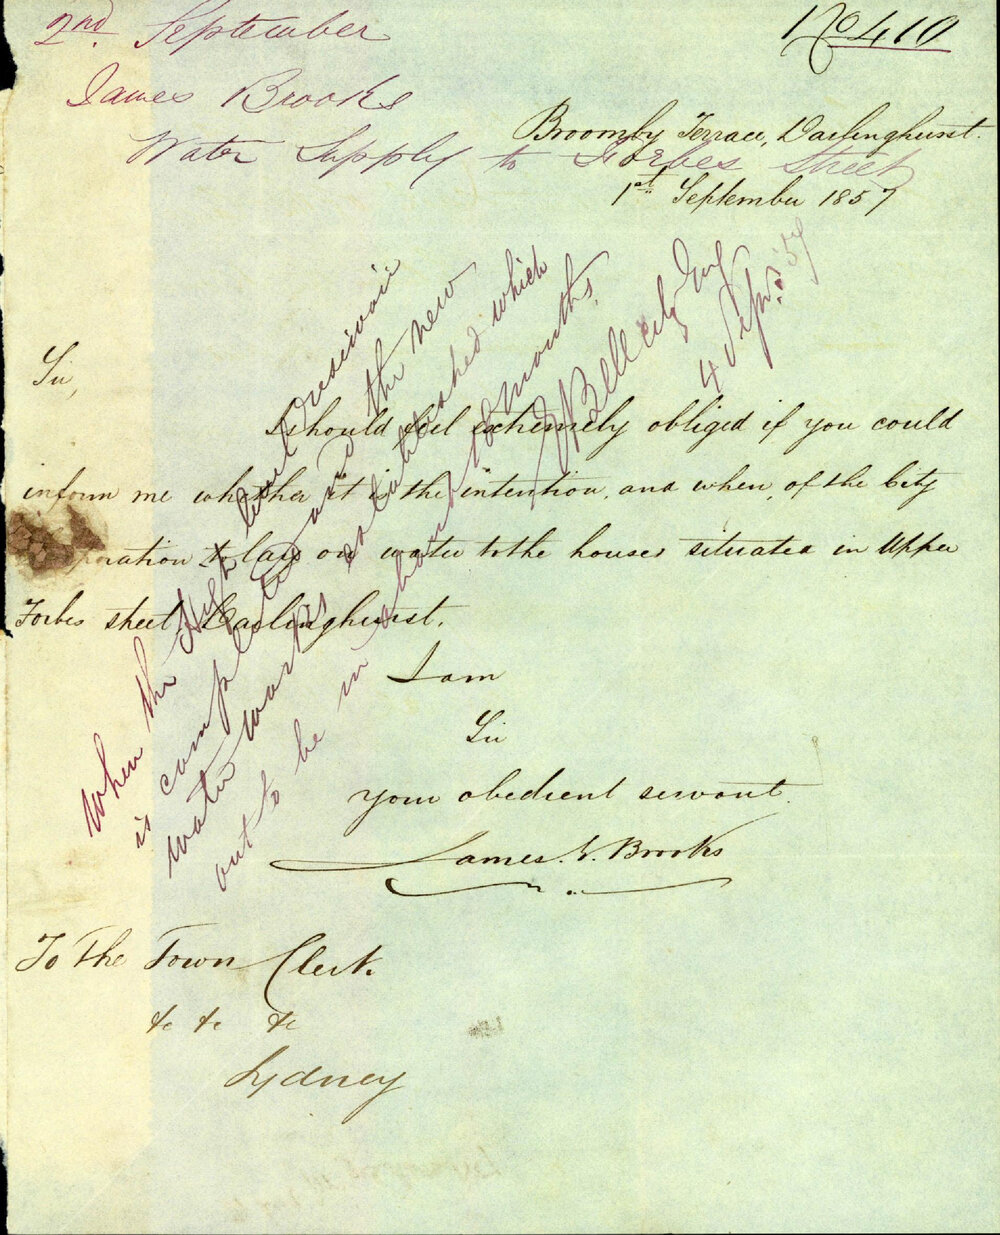 2nd. September
No 410
James Brooks
Water Supply to Forbes Street
Broomby Terrace, Darlinghurst.
1st September 1857
Sir,
I should feel extremely obliged if you could
inform me whether it is the intention, and when, of the City
poration to lay on water to the houses situated in Upper
Forbes street, Darlinghurst.
I am
Sir
your obedient servant
James V. Brooks
To The Town Clerk.
&c &c &c
Sydney
When the High level reservoir
is completed and the new
water works established which
out to be in about 12 months.
Bell City Eng
4 Sepr. '57